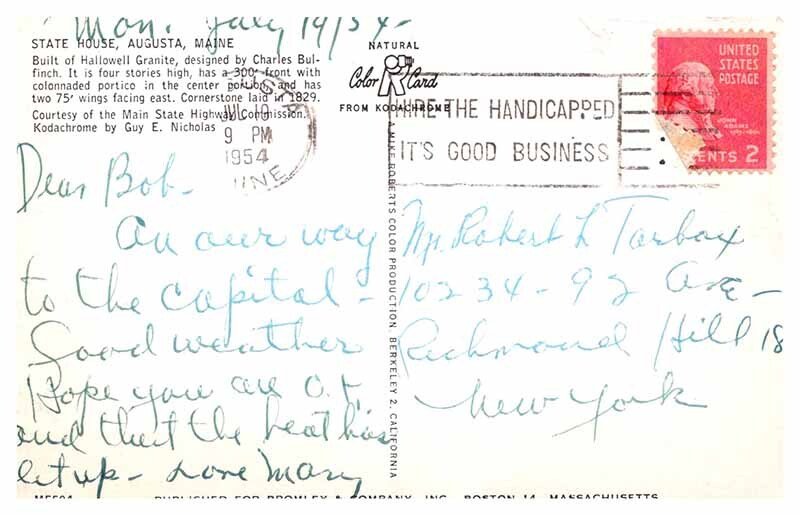 Mon. July 19/54-
STATE HOUSE, AUGUSTA, MAINE
Built of Hallowell Granite, designed by Charles Bul-
finch. It is four stories high, has a 300' front with
colonnaded portico in the center portion, and has
two 75' wings facing east. Cornerstone laid in 1829.
Courtesy of the Main State Highway Commission.
Kodachrome by Guy E. Nicholas
NATURAL
Color Card
FROM KODACHROME
JUL 19
9 PM
1954
HIRE THE HANDICAPPED
IT'S GOOD BUSINESS
UNITED
STATES
POSTAGE
JOHN
ADAMS
CENTS 2
A MIKE ROBERTS COLOR PRODUCTION, BERKELEY 2, CALIFORNIA
Dear Bob-
On our way
to the capital -
Good weather
Hope you are O.K.
and that the heat has
let up - Love Mary
Mr. Robert L Tarbox
10234 - 92 Ave -
Richmond Hill 18
New York
PUBLISHED FOR BROMLEY & COMPANY, INC., BOSTON 14, MASSACHUSETTS